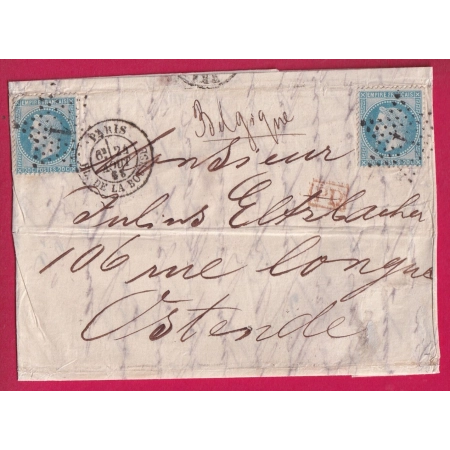 EMPIRE FRANC
EMPIRE FRANC
PARIS
6E 21
AOUT
68
PL. DE LA BOURSE
Belgique
Monsieur
P.D.
Julius Eltzbacher
106 rue longue
Ostende